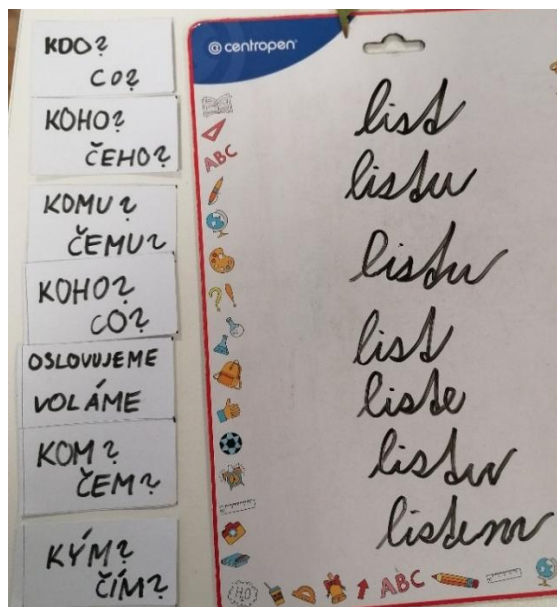 KDO?
CO?
KOHO?
ČEHO?
KOMU?
ČEMU?
KOHO?
CO?
OSLOVUJEME
VOLÁME
KOM?
ČEM?
KÝM?
ČÍM?
@ centropen
ABC
list
listu
listu
list
liste
listu
listem
?!
H2O
ABC